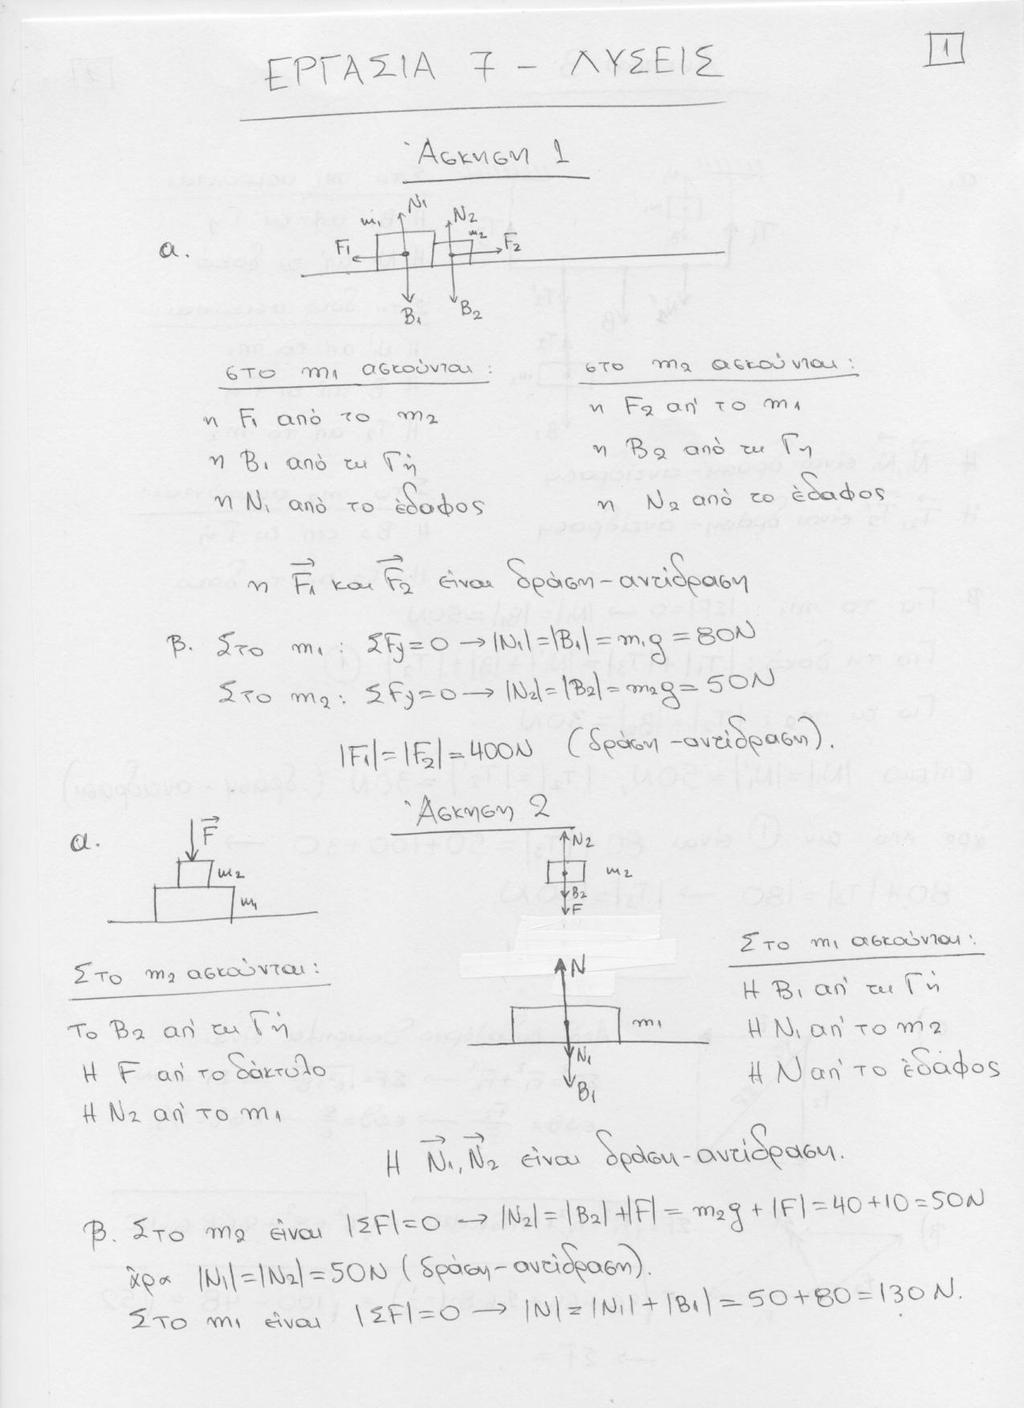 1
ΕΡΓΑΣΙΑ 7 - ΛΥΣΕΙΣ
Άσκηση 1
α.
m₁ N₁ N₂ m₂
F₁ F₂
B₁ B₂
στο m₁ ασκούνται:
η F₁ από το m₂
η B₁ από τη Γή
η N₁ από το έδαφος
στο m₂ ασκούνται:
η F₂ απ' το m₁
η B₂ από τη Γη
η N₂ από το έδαφος
η F⃗₁ και F⃗₂ είναι δράση-αντίδραση
β. Στο m₁: ΣFy=0 → |N₁|=|B₁|=m₁g=80N
Στο m₂: ΣFy=0 → |N₂|=|B₂|=m₂g=50N
|F₁|=|F₂|=400N (δράση-αντίδραση).
Άσκηση 2
α.
F⃗
m₂
m₁
N₂
m₂
B₂
F
N
m₁
N₁
B₁
Στο m₂ ασκούνται:
Το B₂ απ' τη Γή
Η F απ' το δάκτυλο
Η N₂ απ' το m₁
Στο m₁ ασκούνται:
Η B₁ απ' τη Γή
Η N₁ απ' το m₂
Η N απ' το έδάφος
Η N⃗₁, N⃗₂ είναι δράση-αντίδραση.
β. Στο m₂ είναι |ΣF|=0 → |N₂|=|B₂|+|F|=m₂g+|F|=40+10=50N
άρα |N₁|=|N₂|=50N (δράση-αντίδραση).
Στο m₁ είναι |ΣF|=0 → |N|=|N₁|+|B₁|=50+80=130N.